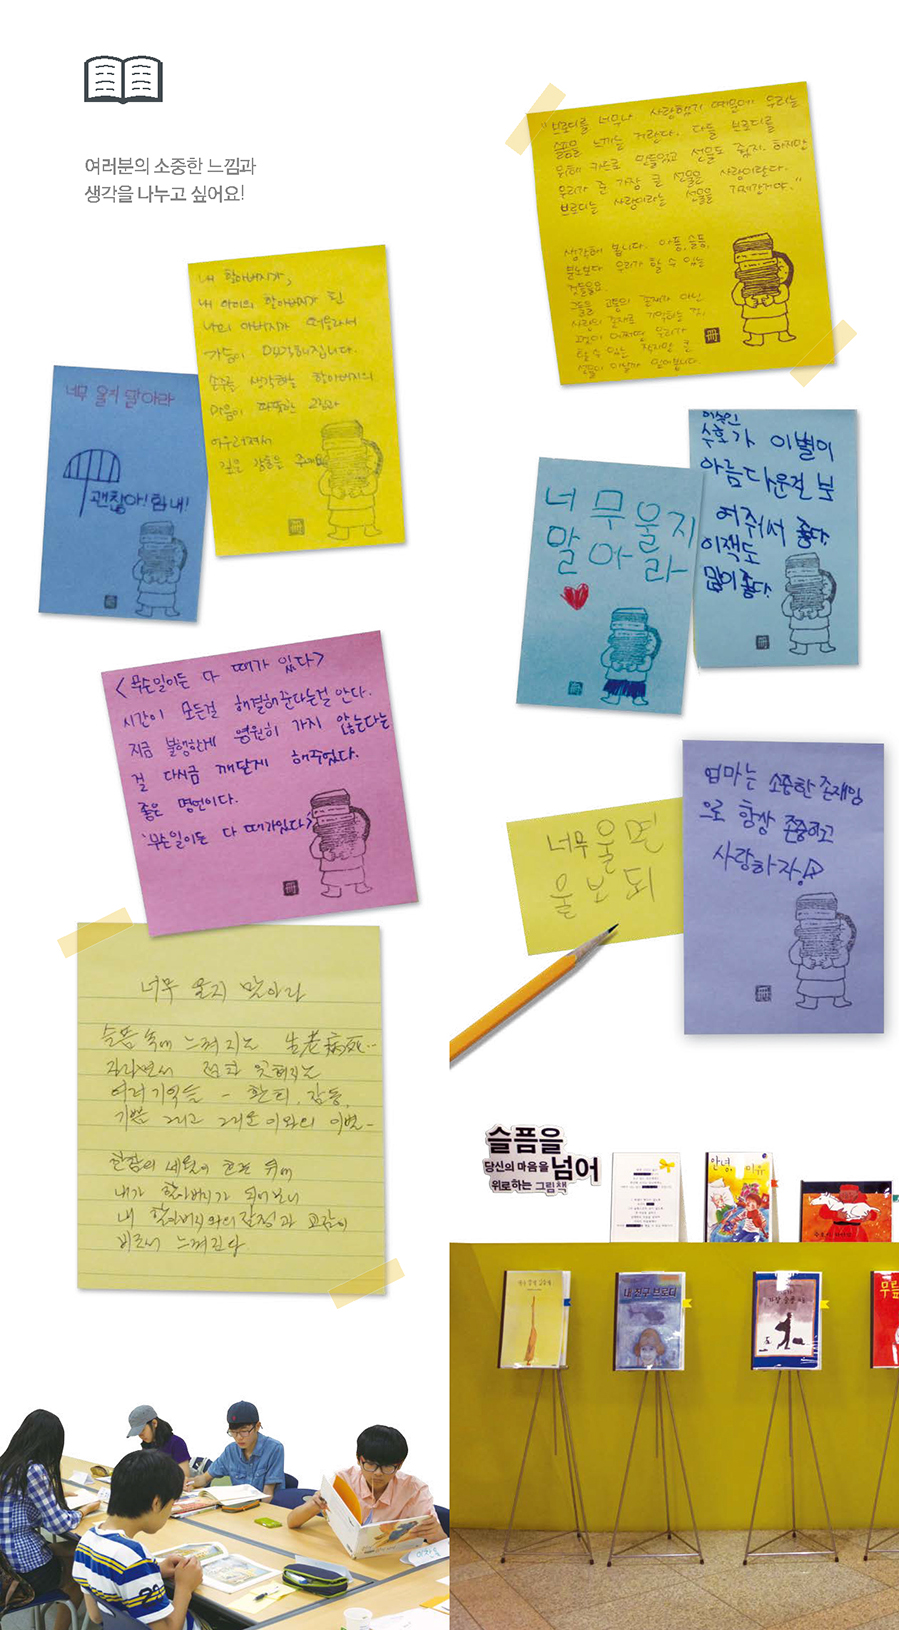 여러분의 소중한 느낌과
생각을 나누고 싶어요!
"브로디를 너무나 사랑했기 때문에 우리는
슬픔을 느끼는 거란다. 다들 브로디를
위해 카드로 만들었고 선물도 줬지. 하지만
우리가 준 가장 큰 선물은 사랑이란다.
브로디는 사랑이라는 선물을 가져간거야."
생각해 봅니다. 아픔, 슬픔,
분노보다 우리가 할 수 있는
것들을요.
고통의 존재가 아닌
사랑의 존재로 기억하는 것,
그것이 어쩌면 우리가
할 수 있는 작지만 큰
선물이 아닐까 싶어봅니다.
내 할아버지가,
내 아이의 할아버지가 된
나의 아버지가 떠올라서
가슴이 먹먹해집니다.
손주를 생각하는 할아버지의
마음이 따뜻한 그림과
어우러져서
깊은 감동을 주네요
너무 울지 말아라
괜찮아! 힘내!
수호가 이별이
아름다운걸 보
여줘서 좋다.
이책도
많이좋다.
너무울지
말아라
<무슨일이든 다 때가 있다>
시간이 모든걸 해결해준다는걸 안다.
지금 불행한게 영원히 가지 않는다는
걸 다시금 깨닫게 해주었다.
좋은 명언이다.
'무슨일이든 다 때가있다'
엄마는 소중한 존재임
으로 항상 존중하고
사랑하자!
너무울면
울보 돼
너무 울지 말아라
슬픔 속에 느껴지는 生老病死..
자라면서 점차 잊혀지는
여러 기억들 - 환희, 감동,
기쁨 그리고 그리운 이와의 이별-
한참의 세월이 흐른 뒤에
내가 할아버지가 되어보니
내 할아버지와의 감정과 교감이
비로서 느껴진다
슬픔을
당신의 마음을 넘어
위로하는 그림책
안녕, 이유
내 친구 브로디
가장 슬픈
무릎